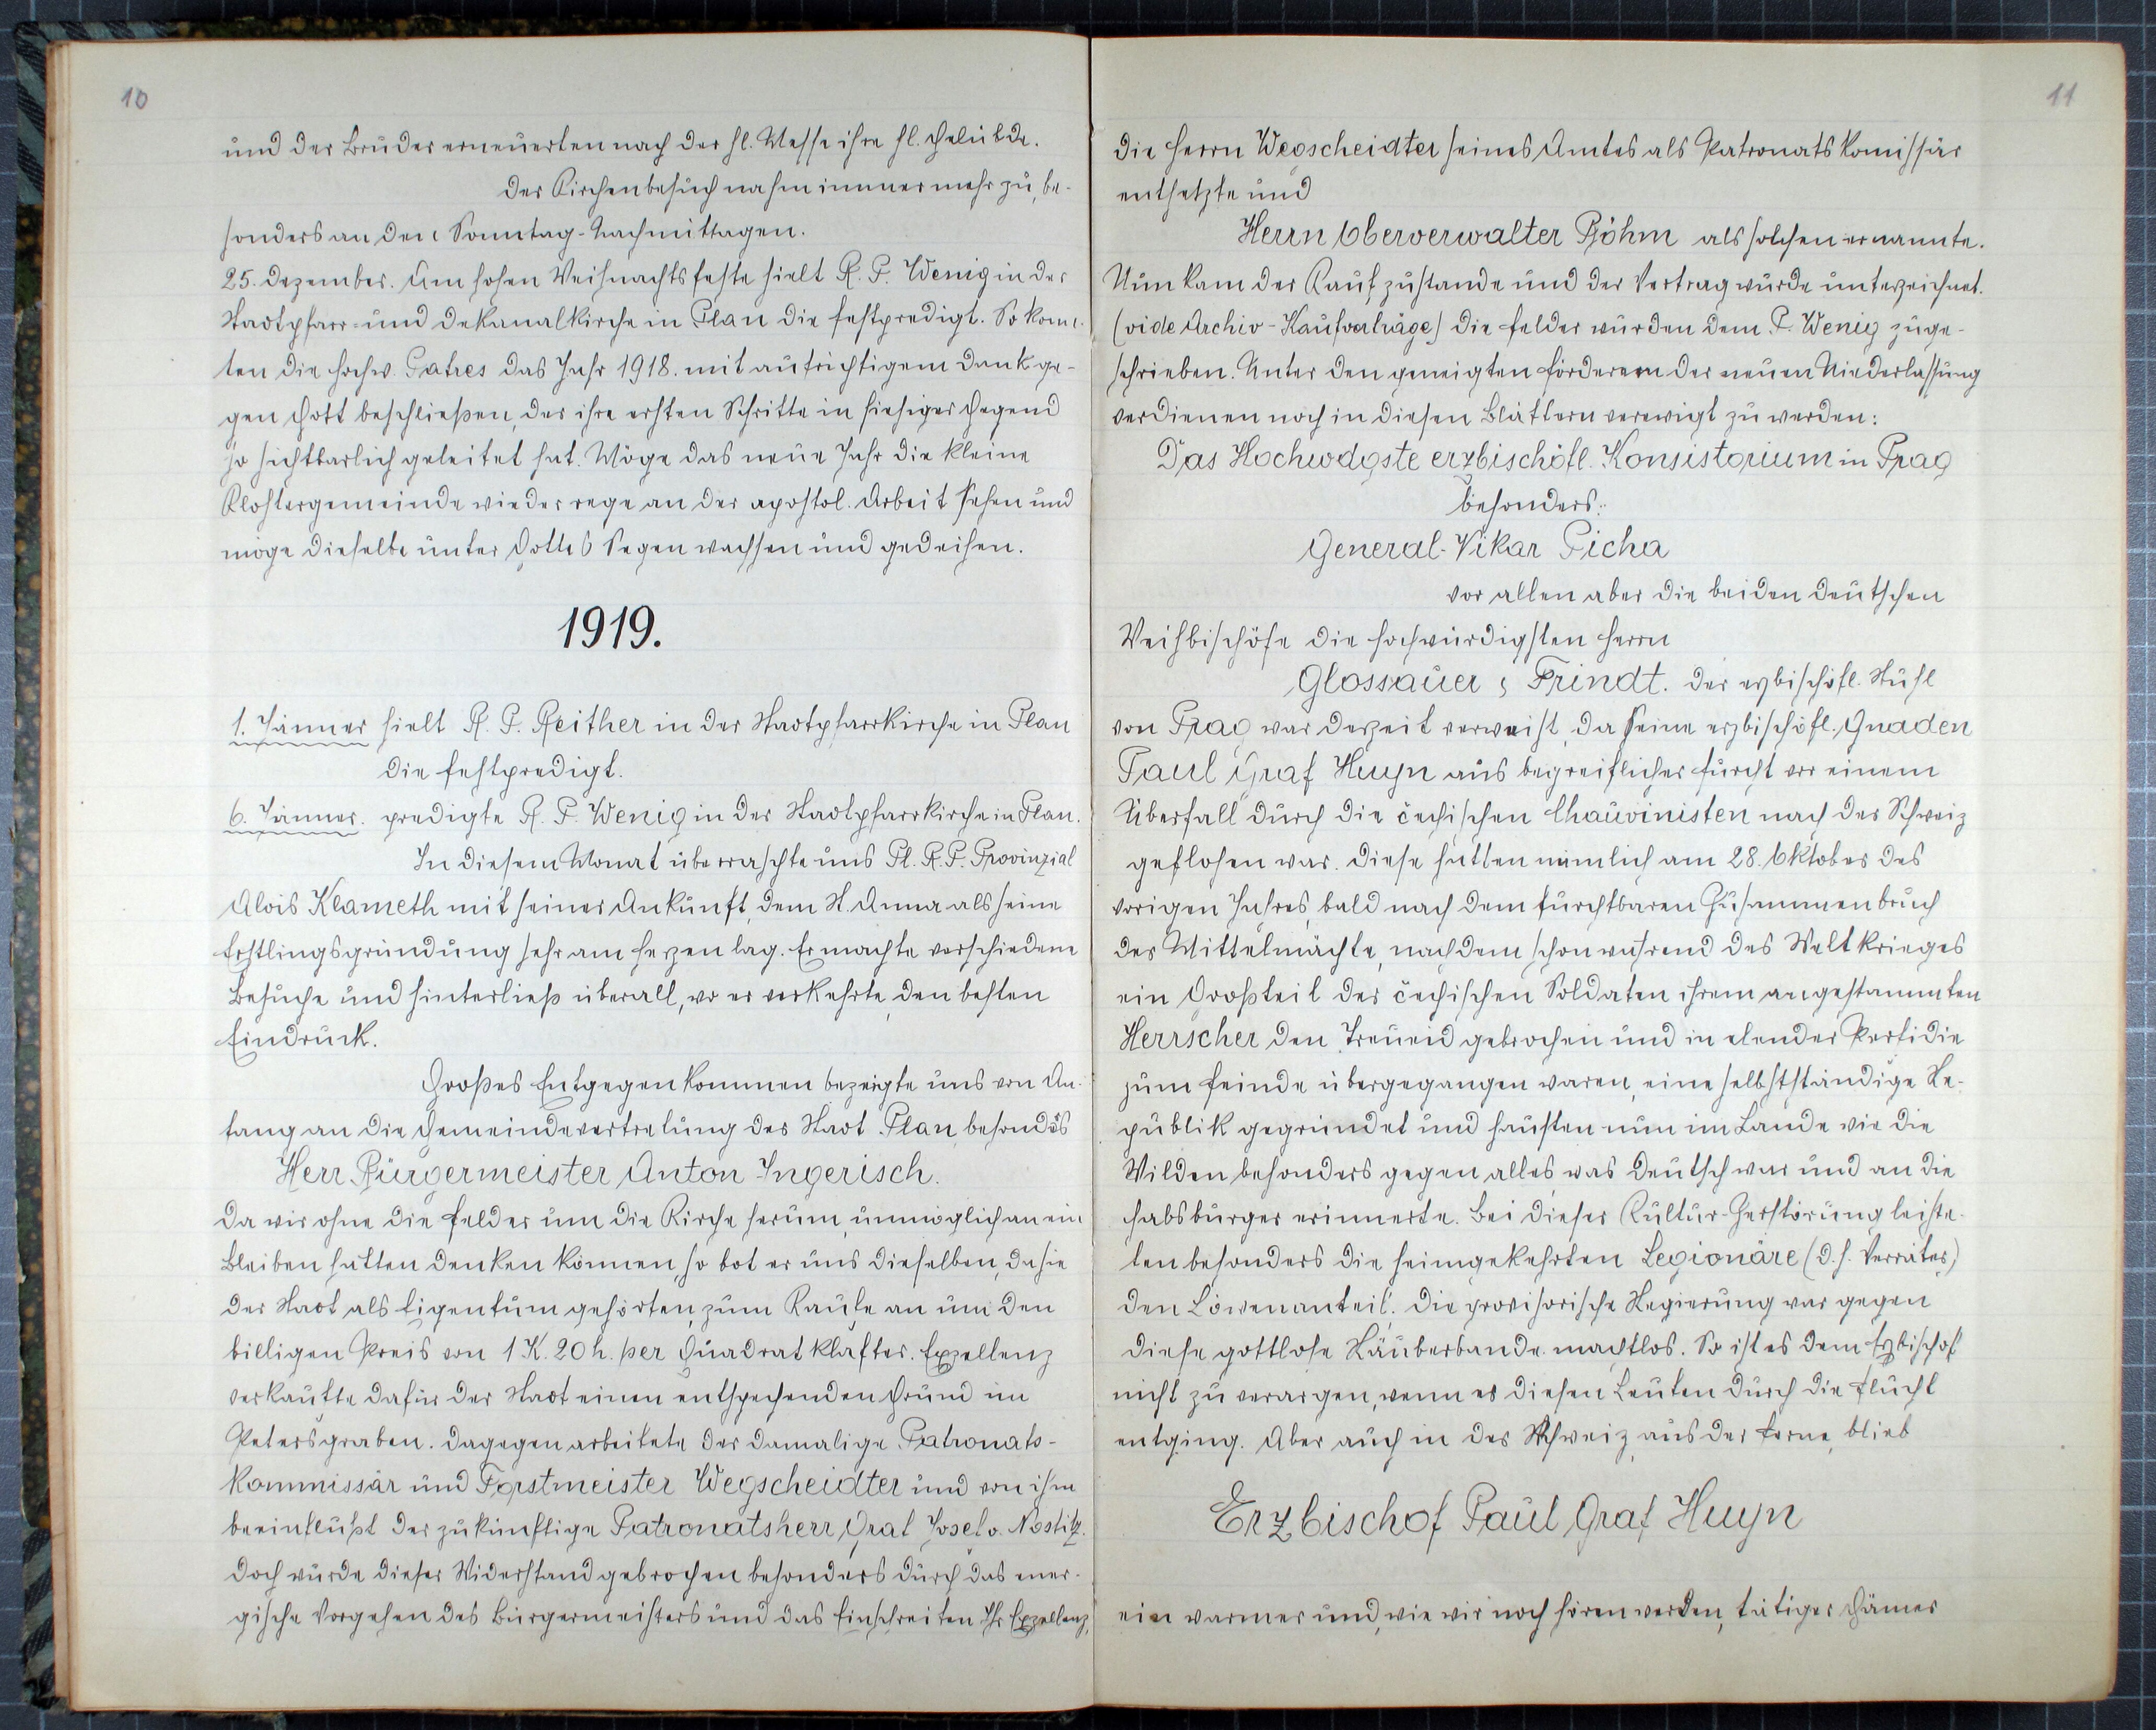 10
und der Brüder erneuerten nach der hl. Messe ihre hl. Gelübde.
Der Kirchenbesuch nahm immer mehr zu, be-
sonders an den Sonntag-Nachmittagen.
25. Dezember. Am hohen Weihnachtsfeste hielt R. P. Wenig in der
Stadtpfarr- und Dekanalkirche in Plan die Festpredigt. So konn-
ten die hochw. Patres das Jahr 1918. mit aufrichtigem Dank ge-
gen Gott beschließen, der ihre ersten Schritte in hiesiger Gegend
so sichtbarlich geleitet hat. Möge das neue Jahr die kleine
Klostergemeinde wieder rege an der apostol. Arbeit sehen und
möge dieselbe unter Gottes Segen wachsen und gedeihen.
1919.
1. Jänner hielt R. P. Reither in der Stadtpfarrkirche in Plan
die Festpredigt.
6. Jänner. predigte R. P. Wenig in der Stadtpfarrkirche in Plan.
In diesem Monat überraschte uns Pl. R. P. Provinzial
Alois Klameth mit seiner Ankunft, dem St. Anna als seine
Erstlingsgründung sehr am Herzen lag. Er machte verschiedene
Besuche und hinterließ überall, wo er verkehrte, den besten
Eindruck.
Großes Entgegenkommen bezeigte uns von An-
fang an die Gemeindevertretung der Stadt Plan, besonders
Herr Bürgermeister Anton Ingerisch.
Da wir ohne die Felder um die Kirche herum, unmöglich an ein
Bleiben hätten denken können, so bot er uns dieselben, da sie
der Stadt als Eigentum gehörten, zum Kaufe an um den
billigen Preis von 1 K. 20 h. per Quadratklafter. Exzellenz
verkaufte dafür der Stadt einen entspechenden Grund im
Petersgraben. Dagegen arbeitete der damalige Patronats-
kommissär und Forstmeister Wegscheidter und von ihm
beeinflußt der zukünftige Patronatsherr Graf Josef v. Nostitz.
Doch wurde dieser Widerstand gebrochen besonders durch das ener-
gische Vorgehen des Bürgermeisters und das Einschreiten Ihr Exzellenz,
11
die Herrn Wegscheidter seines Amtes als Patronatskomissär
entsetzte und
Herrn Oberverwalter Böhm als solchen ernannte.
Nun kam der Kauf zustande und der Vertrag wurde unterzeichnet.
(vide Archiv-Kaufverträge) Die Felder wurden dem P. Wenig zuge-
schrieben. Unter den geneigten Förderern der neuen Niederlassung
verdienen noch in diesen Blättern verewigt zu werden:
Das Hochwdgste erzbischöfl. Konsistorium in Prag
besonders:
General-Vikar Picha
vor allen aber die beiden deutschen
Weihbischöfe die hochwürdigsten Herrn
Glossauer & Frindt. Der erzbischöfl. Stuhl
von Prag war derzeit verweist, da Seine erzbischöfl. Gnaden
Paul Graf Huyn aus begreiflicher Furcht vor einem
Überfall durch die čechischen Chauvinisten nach der Schweiz
geflohen war. Diese hatten nämlich am 28. Oktober des
vorigen Jahres, bald nach dem furchtbaren Zusammenbruch
der Mittelmächte, nachdem schon während des Weltkrieges
ein Großteil der čechischen Soldaten ihrem angestammten
Herrscher den Treueid gebrochen und in elender Perfidie
zum Feinde übergegangen waren, eine selbstständige Re-
publik gegründet und hausten nun im Lande wie die
Wilden besonders gegen alles was deutsch war und an die
Habsburger erinnerte. Bei dieser Kultur-Zerstörung leiste-
ten besonders die heimgekehrten Legionäre (d. h. Verräter)
den Löwenanteil. Die provisorische Regierung war gegen
diese gottlose Räuberbande machtlos. So ist es dem Erzbischof
nicht zu verargen, wenn er diesen Leuten durch die Flucht
entging. Aber auch in der Schweiz, aus der Ferne, blieb
Erzbischof Paul Graf Huyn
ein warmer und, wie wir noch hören werden, tätiger Gönner